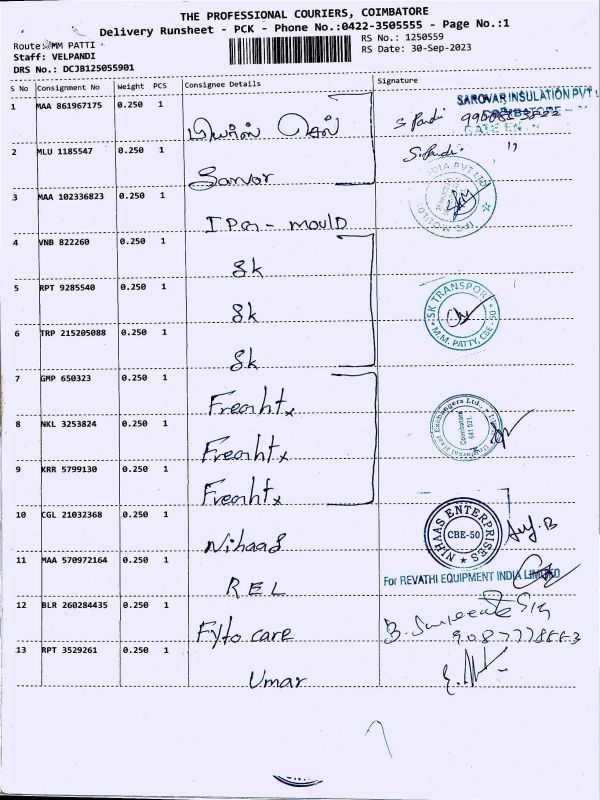 THE PROFESSIONAL COURIERS, COIMBATORE
Delivery Runsheet - PCK - Phone No.:0422-3505555 - Page No.:1
Route: MM PATTI
RS No.: 1250559
Staff: VELPANDI
RS Date: 30-Sep-2023
DRS No.: DCJB125055901
S No Consignment No Weight PCS Consignee Details Signature
1 MAA 861967175 0.250 1 S. Pandi
SAROVAR INSULATION PVT L
COIMBATORE
2 MLU 1185547 0.250 1 Sarvar S. Pandi. 11
3 MAA 102336823 0.250 1 IPG - mould
4 VNB 822260 0.250 1 Sk
5 RPT 9285540 0.250 1 Sk
SK TRANSPORT
M.M. PATTY, CBE - 50
6 TRP 215205088 0.250 1 Sk
7 GMP 650323 0.250 1
8 NKL 3253824 0.250 1
Exchangers Ltd.,
Coimbatore
641 021.
9 KRR 5799130 0.250 1
10 CGL 21032368 0.250 1 Nihaas
NIHAAS ENTERPRISES
CBE-50
11 MAA 570972164 0.250 1 REL
For REVATHI EQUIPMENT INDIA LIMITED
12 BLR 260284435 0.250 1 Fyto care
13 RPT 3529261 0.250 1 Umar